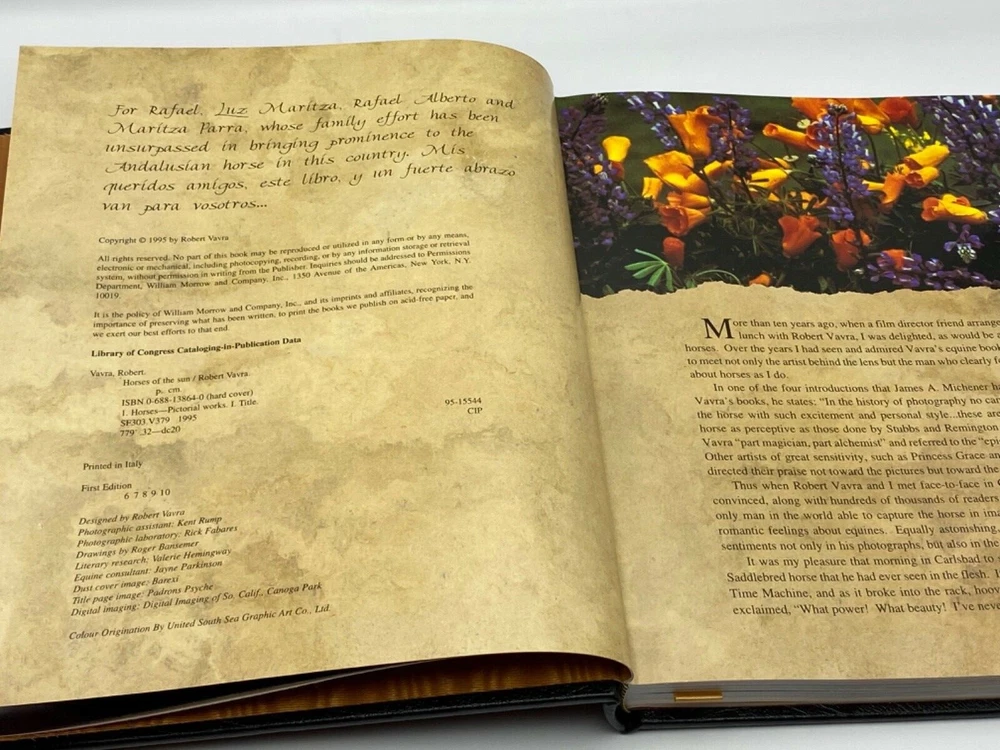 For Rafael, Luz Maritza, Rafael Alberto and
Maritza Parra, whose family effort has been
unsurpassed in bringing prominence to the
Andalusian horse in this country. Mis
queridos amigos, este libro, y un fuerte abrazo
van para vosotros...
Copyright © 1995 by Robert Vavra
All rights reserved. No part of this book may be reproduced or utilized in any form or by any means,
electronic or mechanical, including photocopying, recording, or by any information storage or retrieval
system, without permission in writing from the Publisher. Inquiries should be addressed to Permissions
Department, William Morrow and Company, Inc., 1350 Avenue of the Americas, New York, N.Y.
10019.
It is the policy of William Morrow and Company, Inc., and its imprints and affiliates, recognizing the
importance of preserving what has been written, to print the books we publish on acid-free paper, and
we exert our best efforts to that end.
Library of Congress Cataloging-in-Publication Data
Vavra, Robert.
Horses of the sun / Robert Vavra.
p. cm.
ISBN 0-688-13864-0 (hard cover)
1. Horses—Pictorial works. I. Title.
SF303.V379 1995
779'.32—dc20
95-15544
CIP
Printed in Italy
First Edition
6 7 8 9 10
Designed by Robert Vavra
Photographic assistant: Kent Rump
Photographic laboratory: Rick Fabares
Drawings by Roger Bansemer
Literary research: Valerie Hemingway
Equine consultant: Jayne Parkinson
Dust cover image: Barexi
Title page image: Padrons Psyche
Digital imaging: Digital Imaging of So. Calif., Canoga Park
Colour Origination By United South Sea Graphic Art Co., Ltd.
More than ten years ago, when a film director friend arrange
lunch with Robert Vavra, I was delighted, as would be a
horses. Over the years I had seen and admired Vavra's equine book
to meet not only the artist behind the lens but the man who clearly fe
about horses as I do.
In one of the four introductions that James A. Michener ha
Vavra's books, he states: "In the history of photography no can
the horse with such excitement and personal style...these are
horse as perceptive as those done by Stubbs and Remington
Vavra "part magician, part alchemist" and referred to the "epi
Other artists of great sensitivity, such as Princess Grace an
directed their praise not toward the pictures but toward the
Thus when Robert Vavra and I met face-to-face in
convinced, along with hundreds of thousands of readers
only man in the world able to capture the horse in ima
romantic feelings about equines. Equally astonishing,
sentiments not only in his photographs, but also in the
It was my pleasure that morning in Carlsbad to
Saddlebred horse that he had ever seen in the flesh. I
Time Machine, and as it broke into the rack, hoov
exclaimed, "What power! What beauty! I've neve